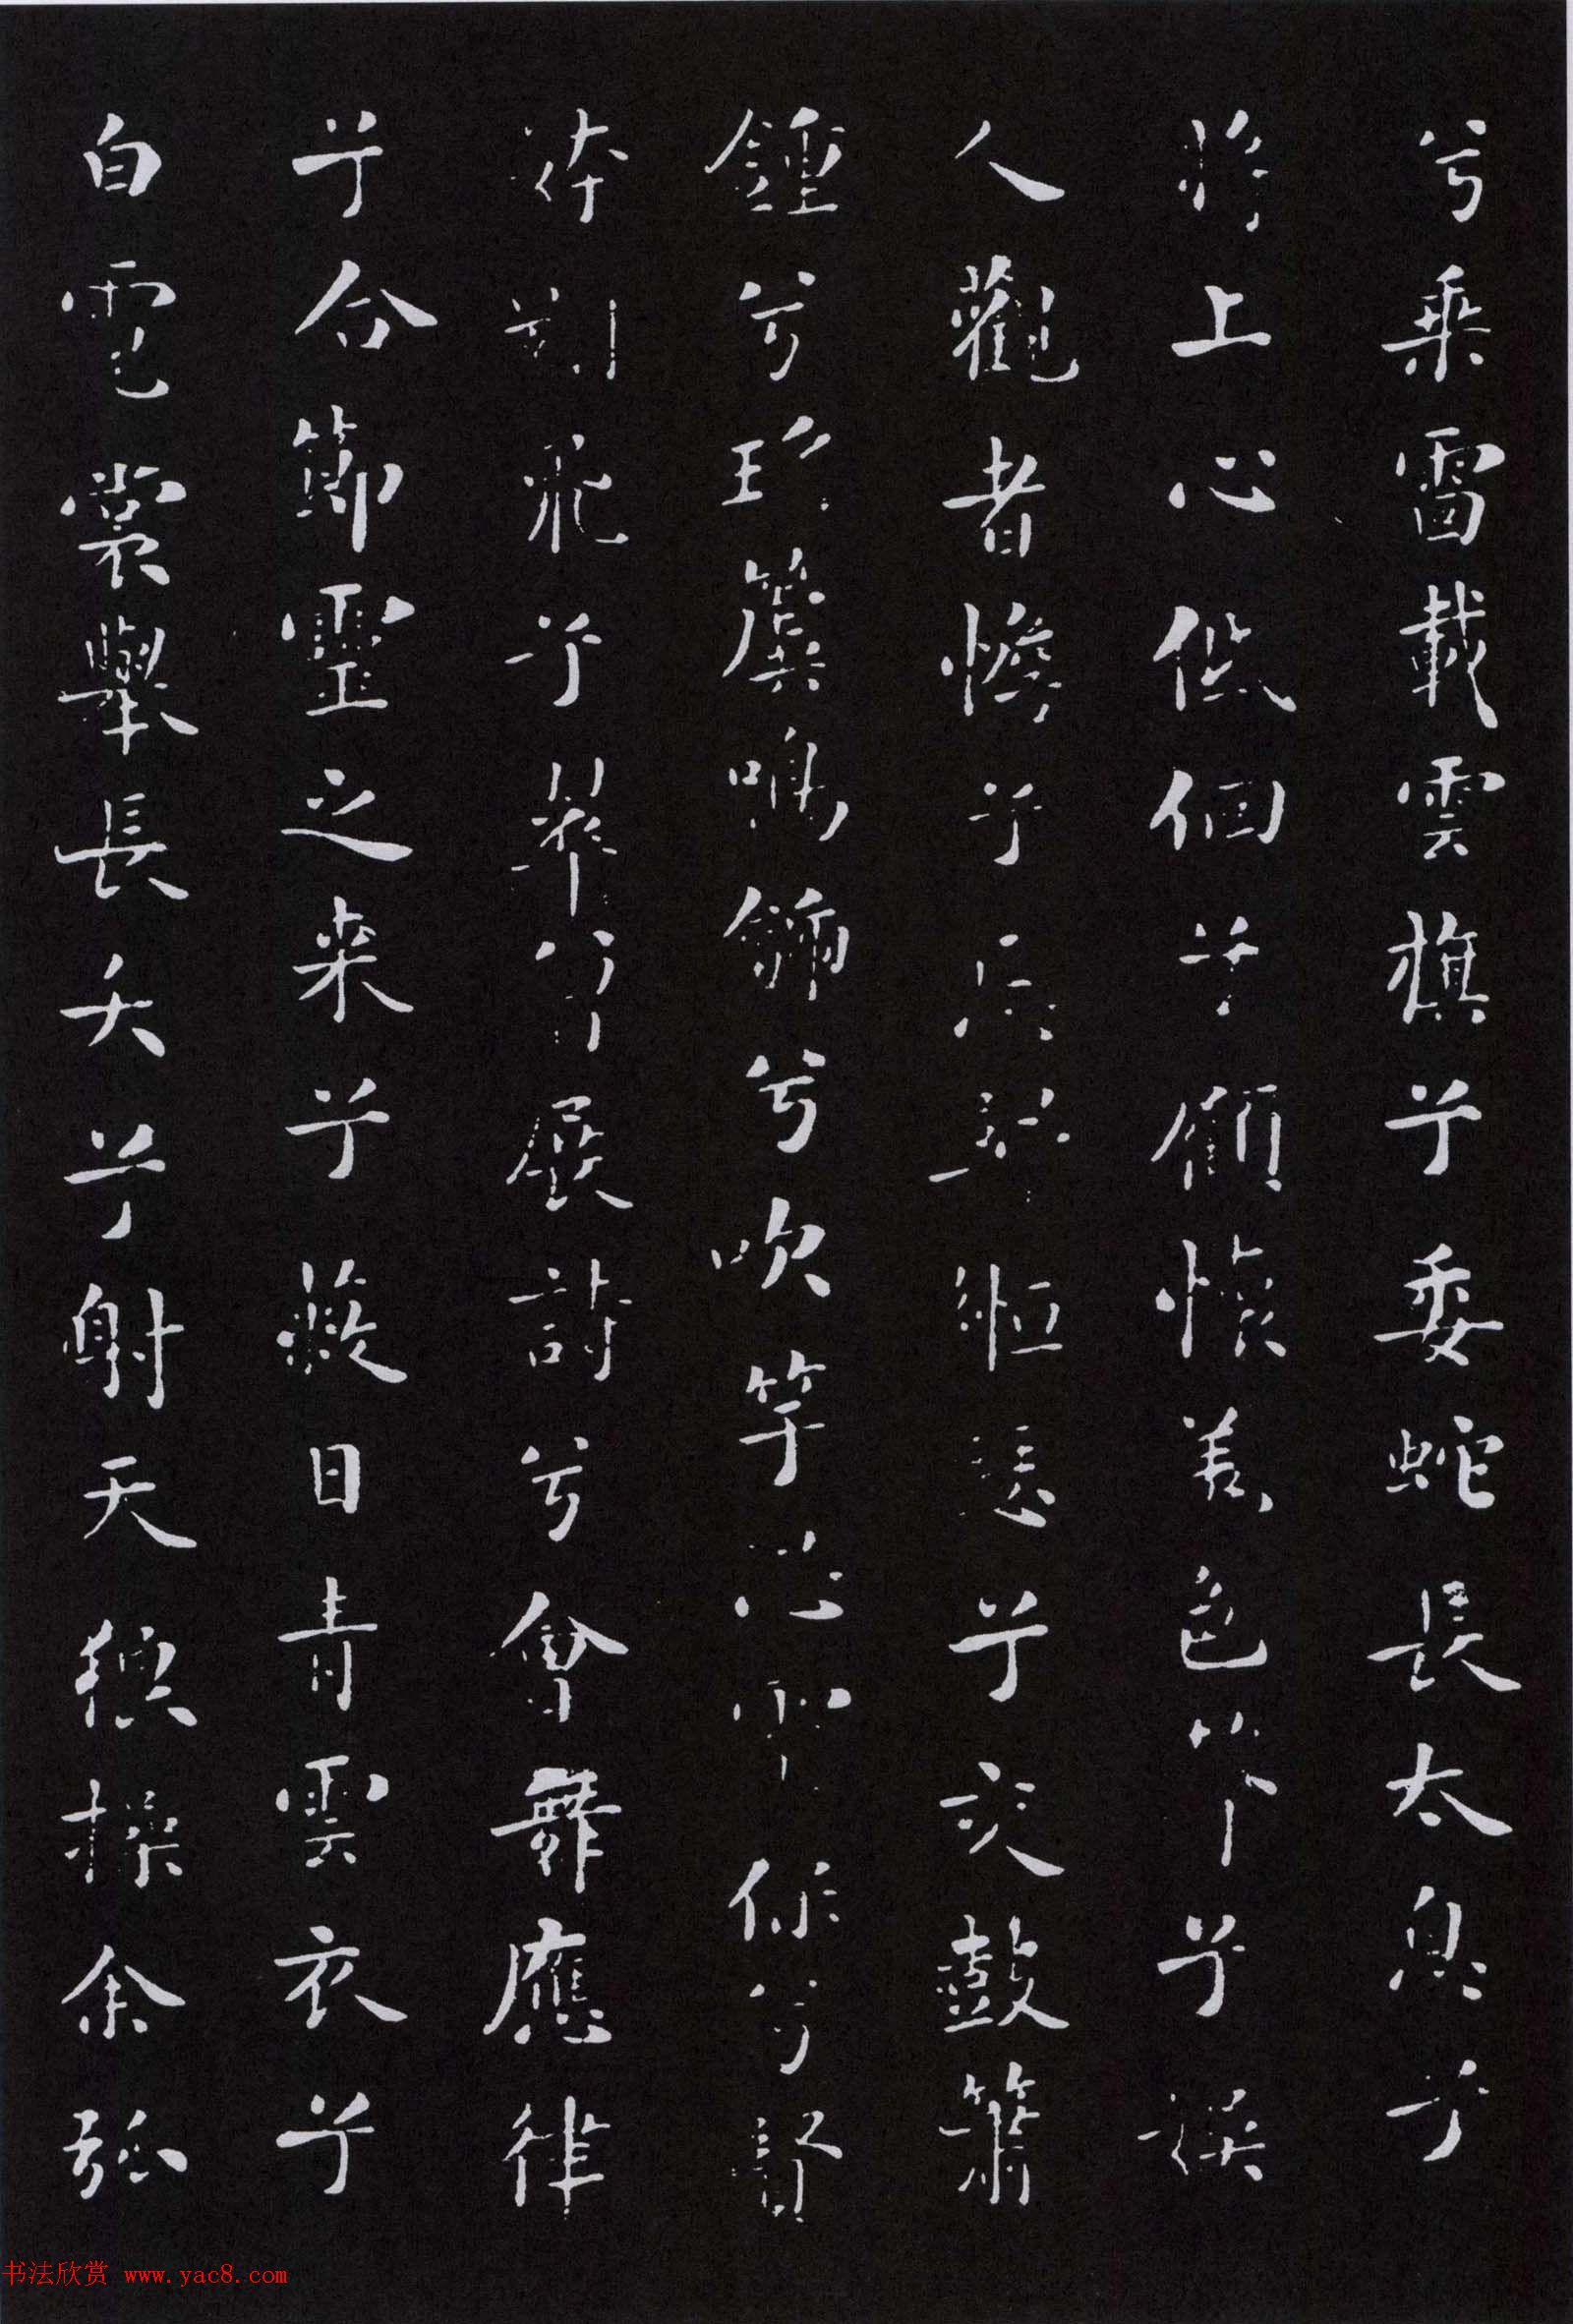 兮乘雷載雲旗兮委蛇長太息兮
將上心低佪兮顧懷羌色兮娛
人觀者憺兮忘歸緪瑟兮交鼓簫
鍾兮瑶簴鳴䶵兮吹竽思靈保兮賢
姱翾飛兮翠曾展詩兮會舞應律
兮合節靈之来兮蔽日青雲衣兮
白霓裳舉長矢兮射天狼操余弧
书法欣赏 www.yac8.com